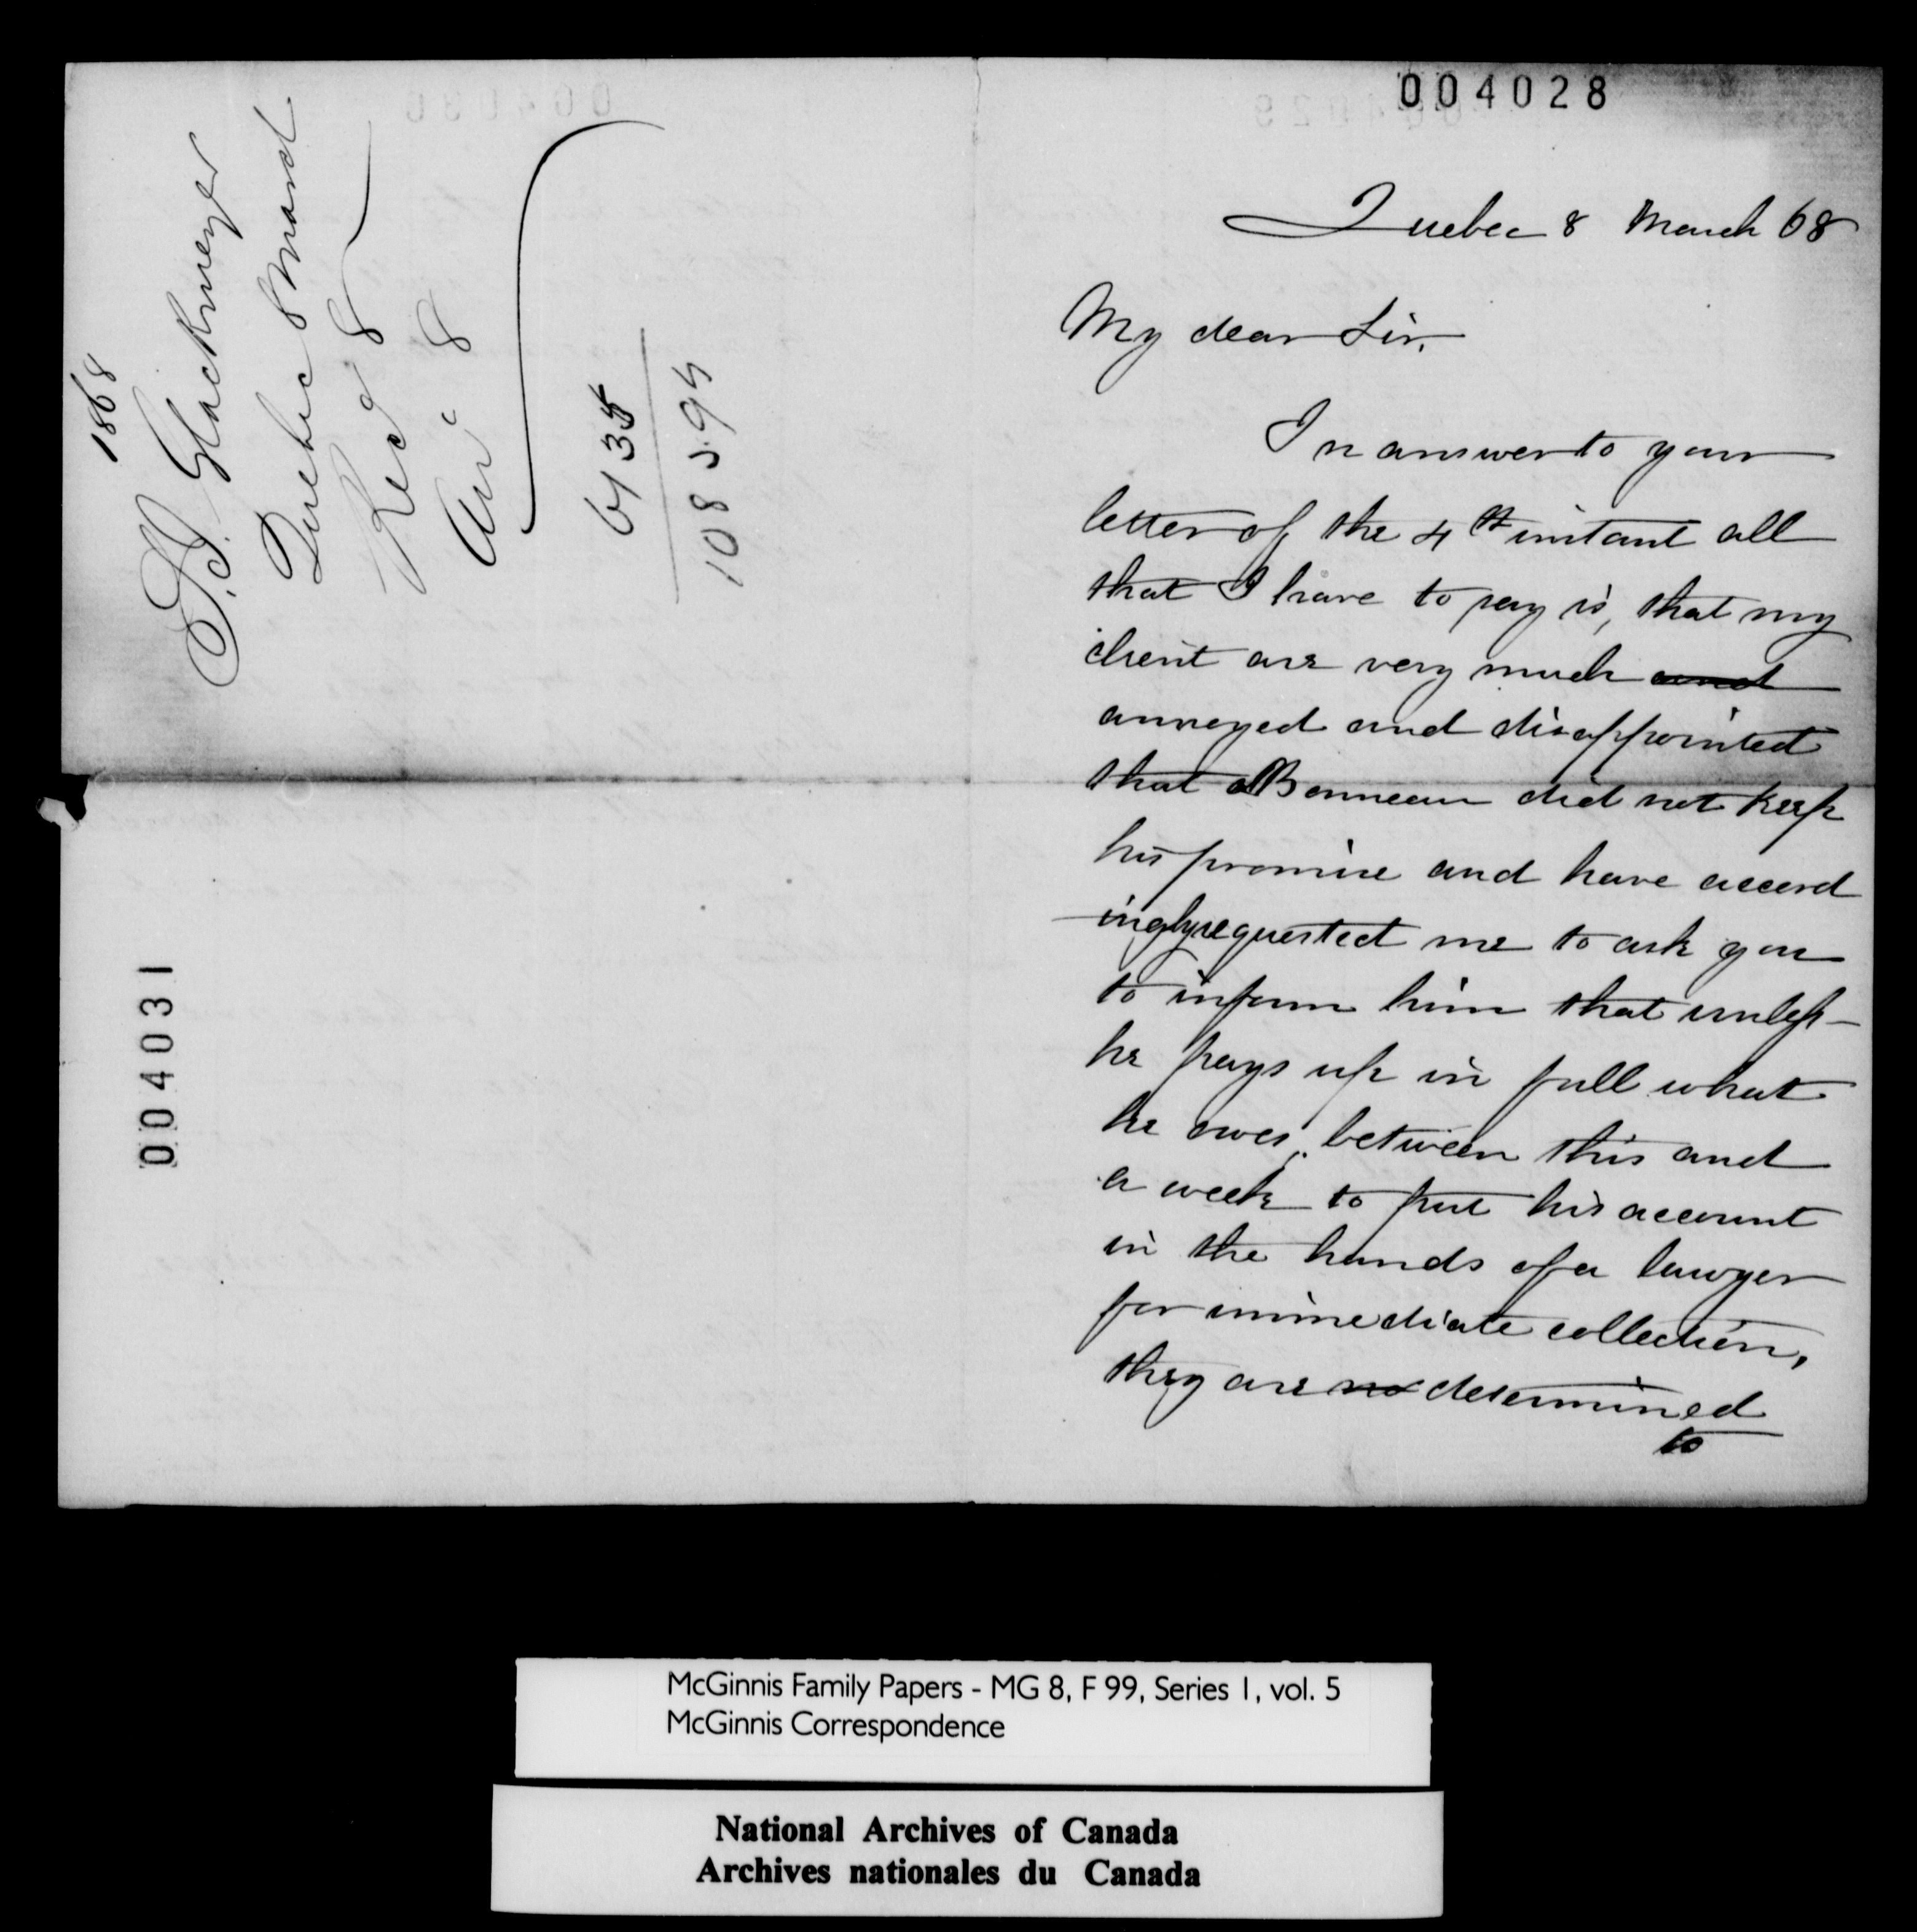 004028
Quebec 8 March 68
My dear Sir,
In answer to your
letter of the 4th instant all
that I have to say is, that my
client are very much and
annoyed and disappointed
that Bonneau did not keep
his promise and have accord
ingly requested me to ask you
to inform him that unless
he pays up in full what
he owes, between this and
a week to put his account
in the hands of a lawyer
for immediate collection,
they are no determined
to
1868
Glackmeyer
Quebec 8 March
Recd 8
An 8
6135
004031
McGinnis Family Papers - MG 8, F 99, Series 1, vol. 5
McGinnis Correspondence
National Archives of Canada
Archives nationales du Canada